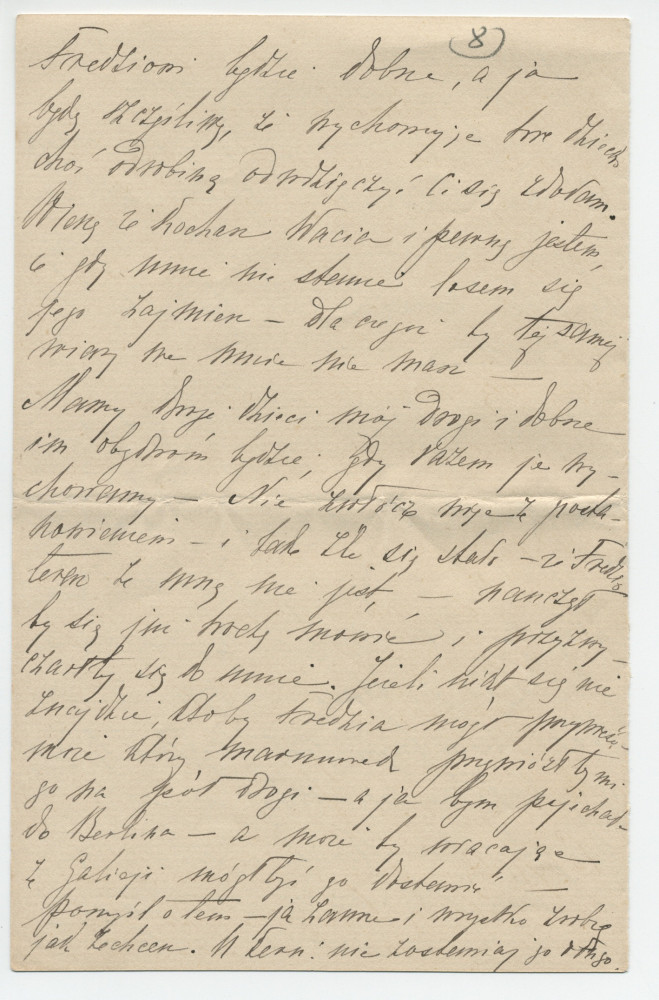 8
Fredziowi będzie dobrze, a ja
będę szczęśliwy, że wychowując twe dziecko
choć odrobinę odwdzięczyć Ci się zdołam.
Wiem że kochasz Wacia i pewny jestem,
że gdy mnie nie stanie losem się
jego zajmiesz – dla czegoż by tej samej
wiary we mnie nie masz –
Mamy dwoje dzieci mój drogi i dobrze
im obydwóm będzie, gdy razem je wy-
chowamy – Nie zwlócz więc z posta-
nowieniem – i tak źle się stało – że Fredzio
teraz ze mną nie jest, – nauczył
by się już trochę mówić i przyzwy-
czaił by się do mnie. Jeżeli nikt się nie
znajdzie, ktoby Fredzia mógł przywieść
może który przywiózł by mi
go na pół drogi – a ja bym pojechał
do Berlina – a może by wracając
z Galicji mógłbyś go dostawić –
pomyśl o tem – ja i wszystko zrobię
jak zechcesz. nie zostawiaj go długo.